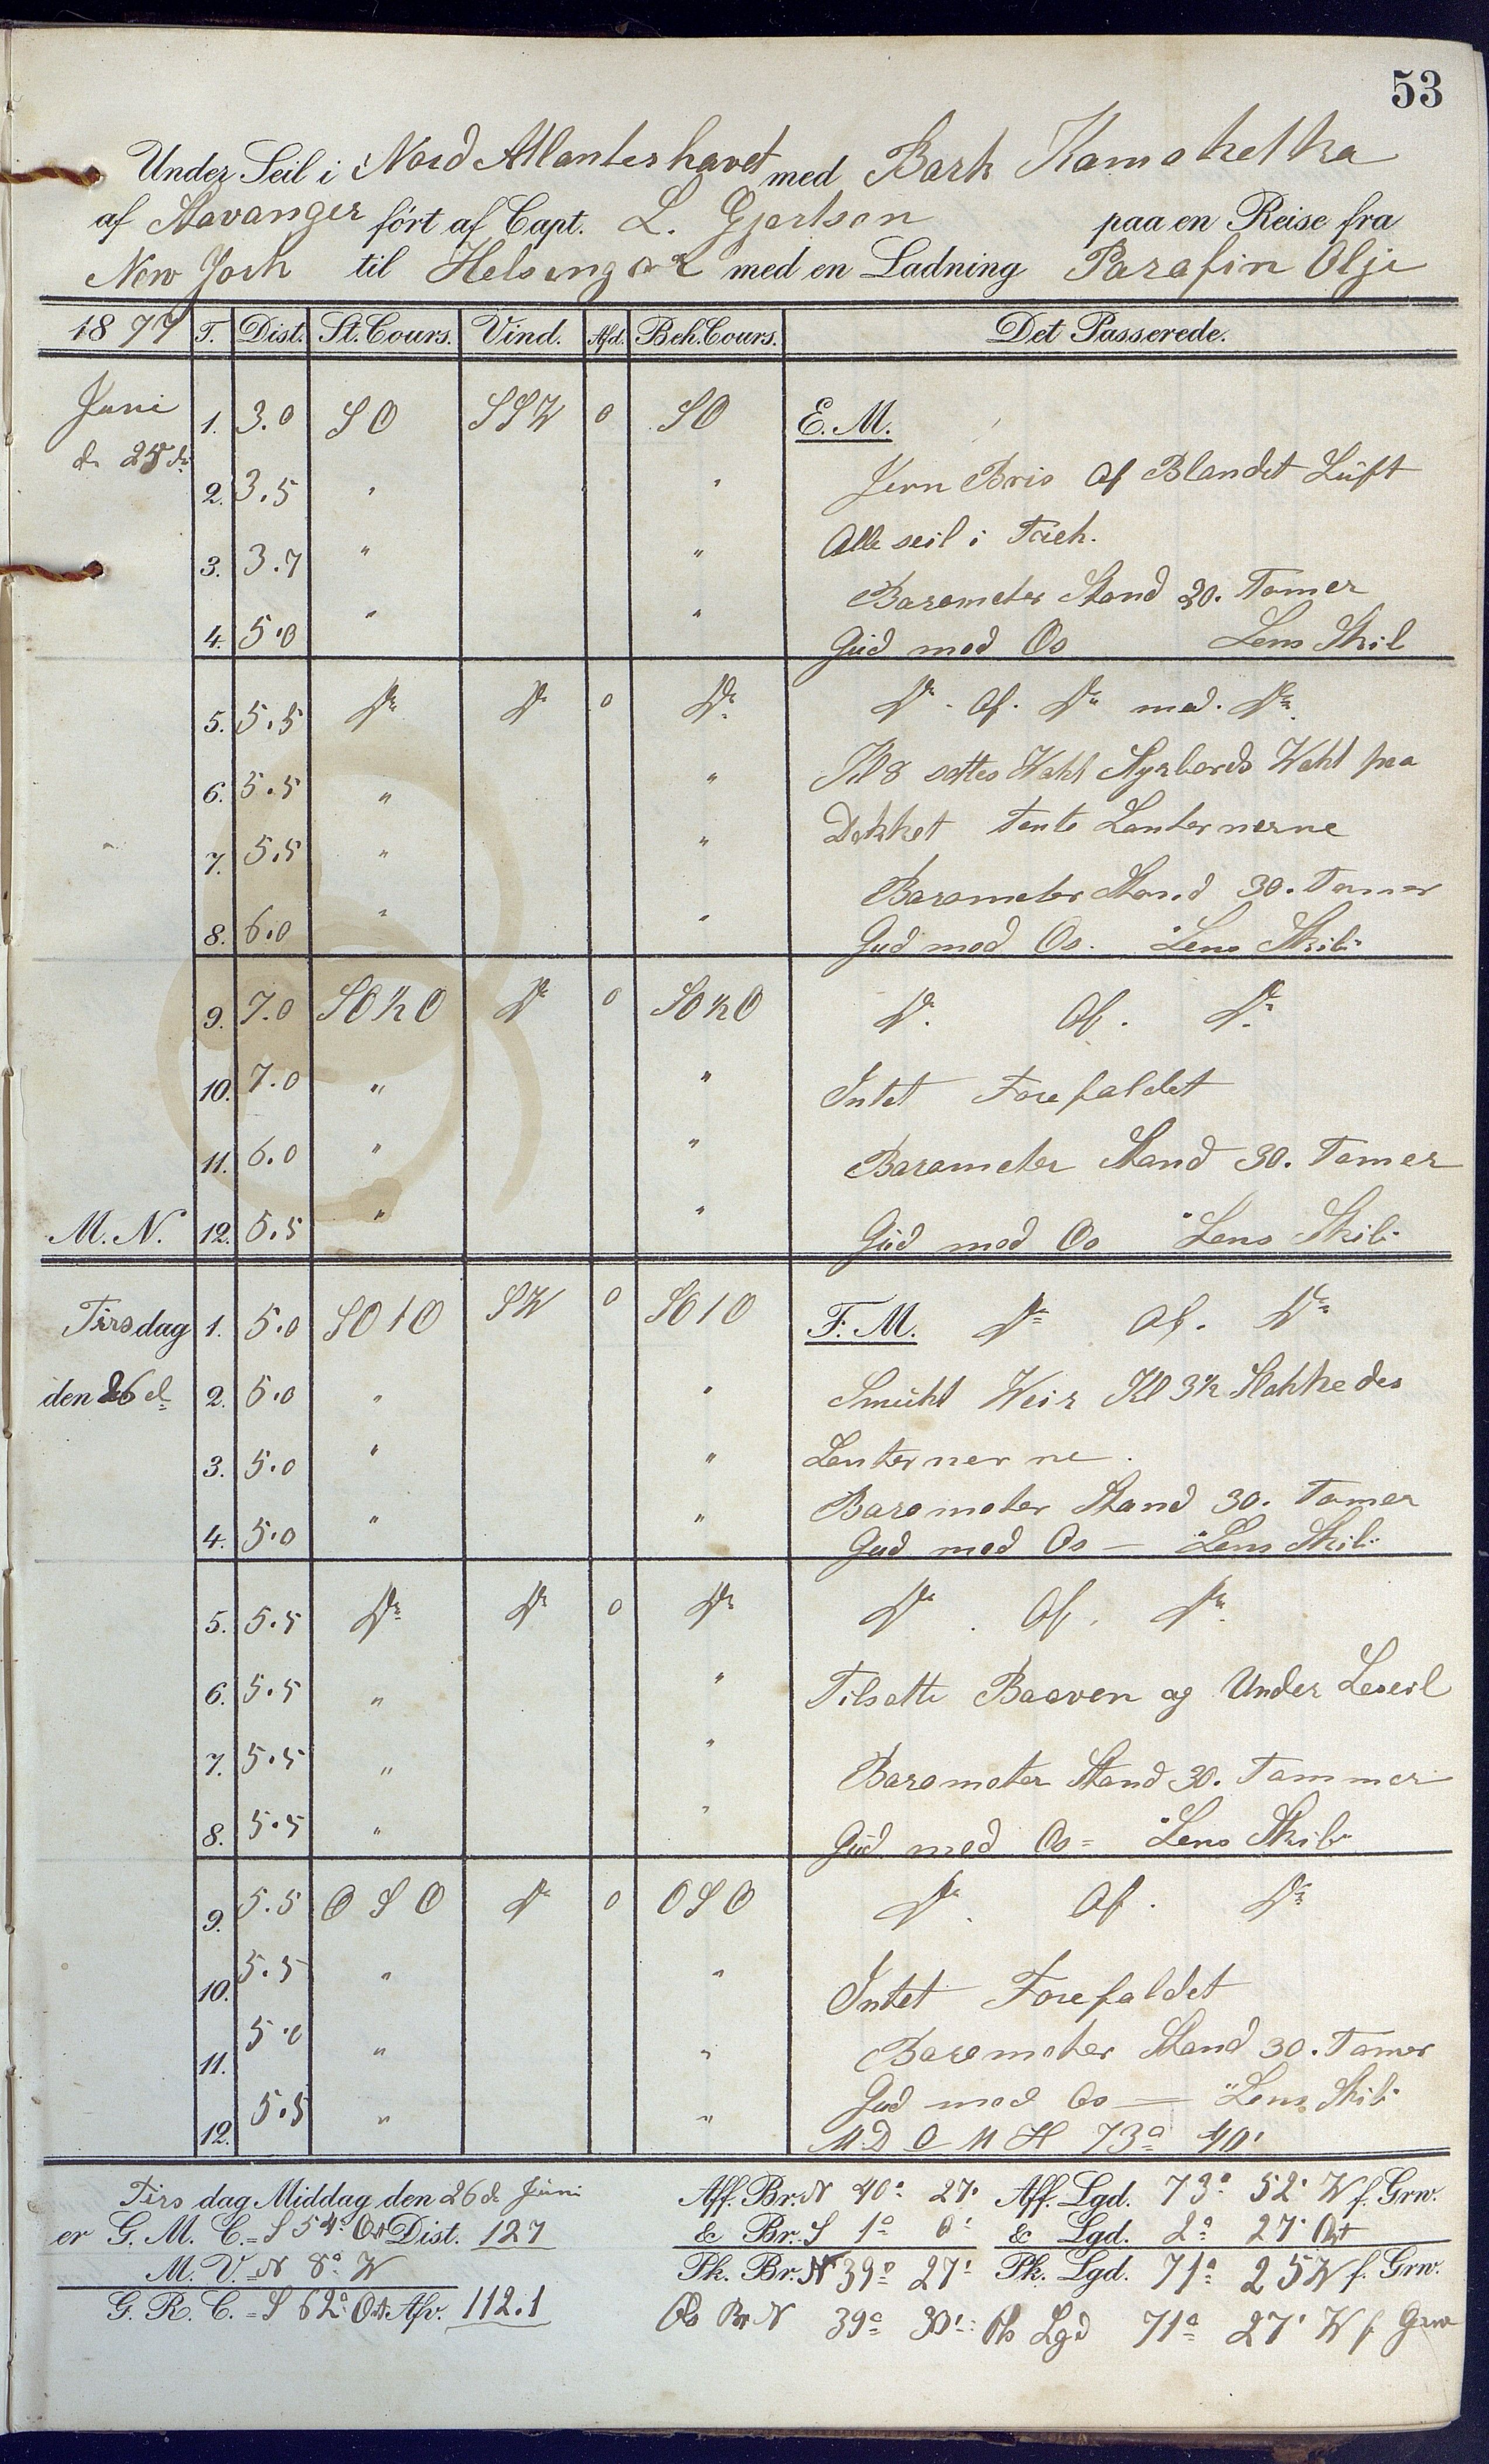 53
Under Seil i Nord Atlanterhavet med Bark Kamohetka
af Stavanger ført af Capt. L. Gjertsen paa en Reise fra
New York til Helsingør med en Ladning Parafin Olje
1877 T. Dist. St. Cours. Vind. Afd. Beh. Cours. Det Passerede.
Juni 1. 3.0 SO SSW 0 SO E. M.
d. 25 de 2. 3.5 " " Jevn Bris Af Blandet Luft
3. 3.7 " " Alle seil i
4. 5.0 " " Barometer Stand 30. Tomer
Gud med Os Lens Skib
5. 5.5 Do Do 0 Do Do. Af. Do med. Do
6. 5.5 " " Kl 8 sattes Vakt Styrbords Vakt paa
7. 5.5 " " Dekket Tente Lanternerne
8. 6.0 " " Barometer Stand 30. Tomer
Gud med Os. Lens Skib
9. 7.0 SO½O Do 0 SO½O Do. Af. Do
10. 7.0 " " Intet Forefaldet
11. 6.0 " " Barometer Stand 30. Tomer
M. N. 12. 5.5 " " Gud med Os Lens Skib
Tirsdag 1. 5.0 SO1O SW 0 SO1O F. M. Do Af. Do
den 26 d 2. 5.0 " " Smukt Veir Kl 3½ Slakkedes
3. 5.0 " " Lanternerne.
4. 5.0 " " Barometer Stand 30. Tomer
Gud med Os — Lens Skib
5. 5.5 Do Do 0 Do Do. Af. Do
6. 5.5 " " Tilsatte Boven og Under Leseil
7. 5.5 " " Barometer Stand 30. Tommer
8. 5.5 " " Gud med Os = Lens Skib
9. 5.5 OSO Do 0 OSO Do. Af. Do
10. 5.5 " " Intet Forefaldet
11. 5.0 " " Barometer Stand 30. Tomer
12. 5.5 " " Gud med Os — Lens Skib
M D O M H 73° 40'
Tirsdag Middag den 26 d. Juni Aff. Br. N 40° 27' Aff. Lgd. 73° 52' W f. Grw.
er G. M. C. = S 54° Ost Dist. 127 & Br. S 1° 0' & Lgd. 2° 27' Ost
M. V. = N 8° W Pk. Br. N 39° 27' Pk. Lgd. 71° 25 W f. Grw.
G. R. C. = S 62° Ost Afv. 112.1 Os Br N 39° 30' Os Lgd 71° 27' W f Grw